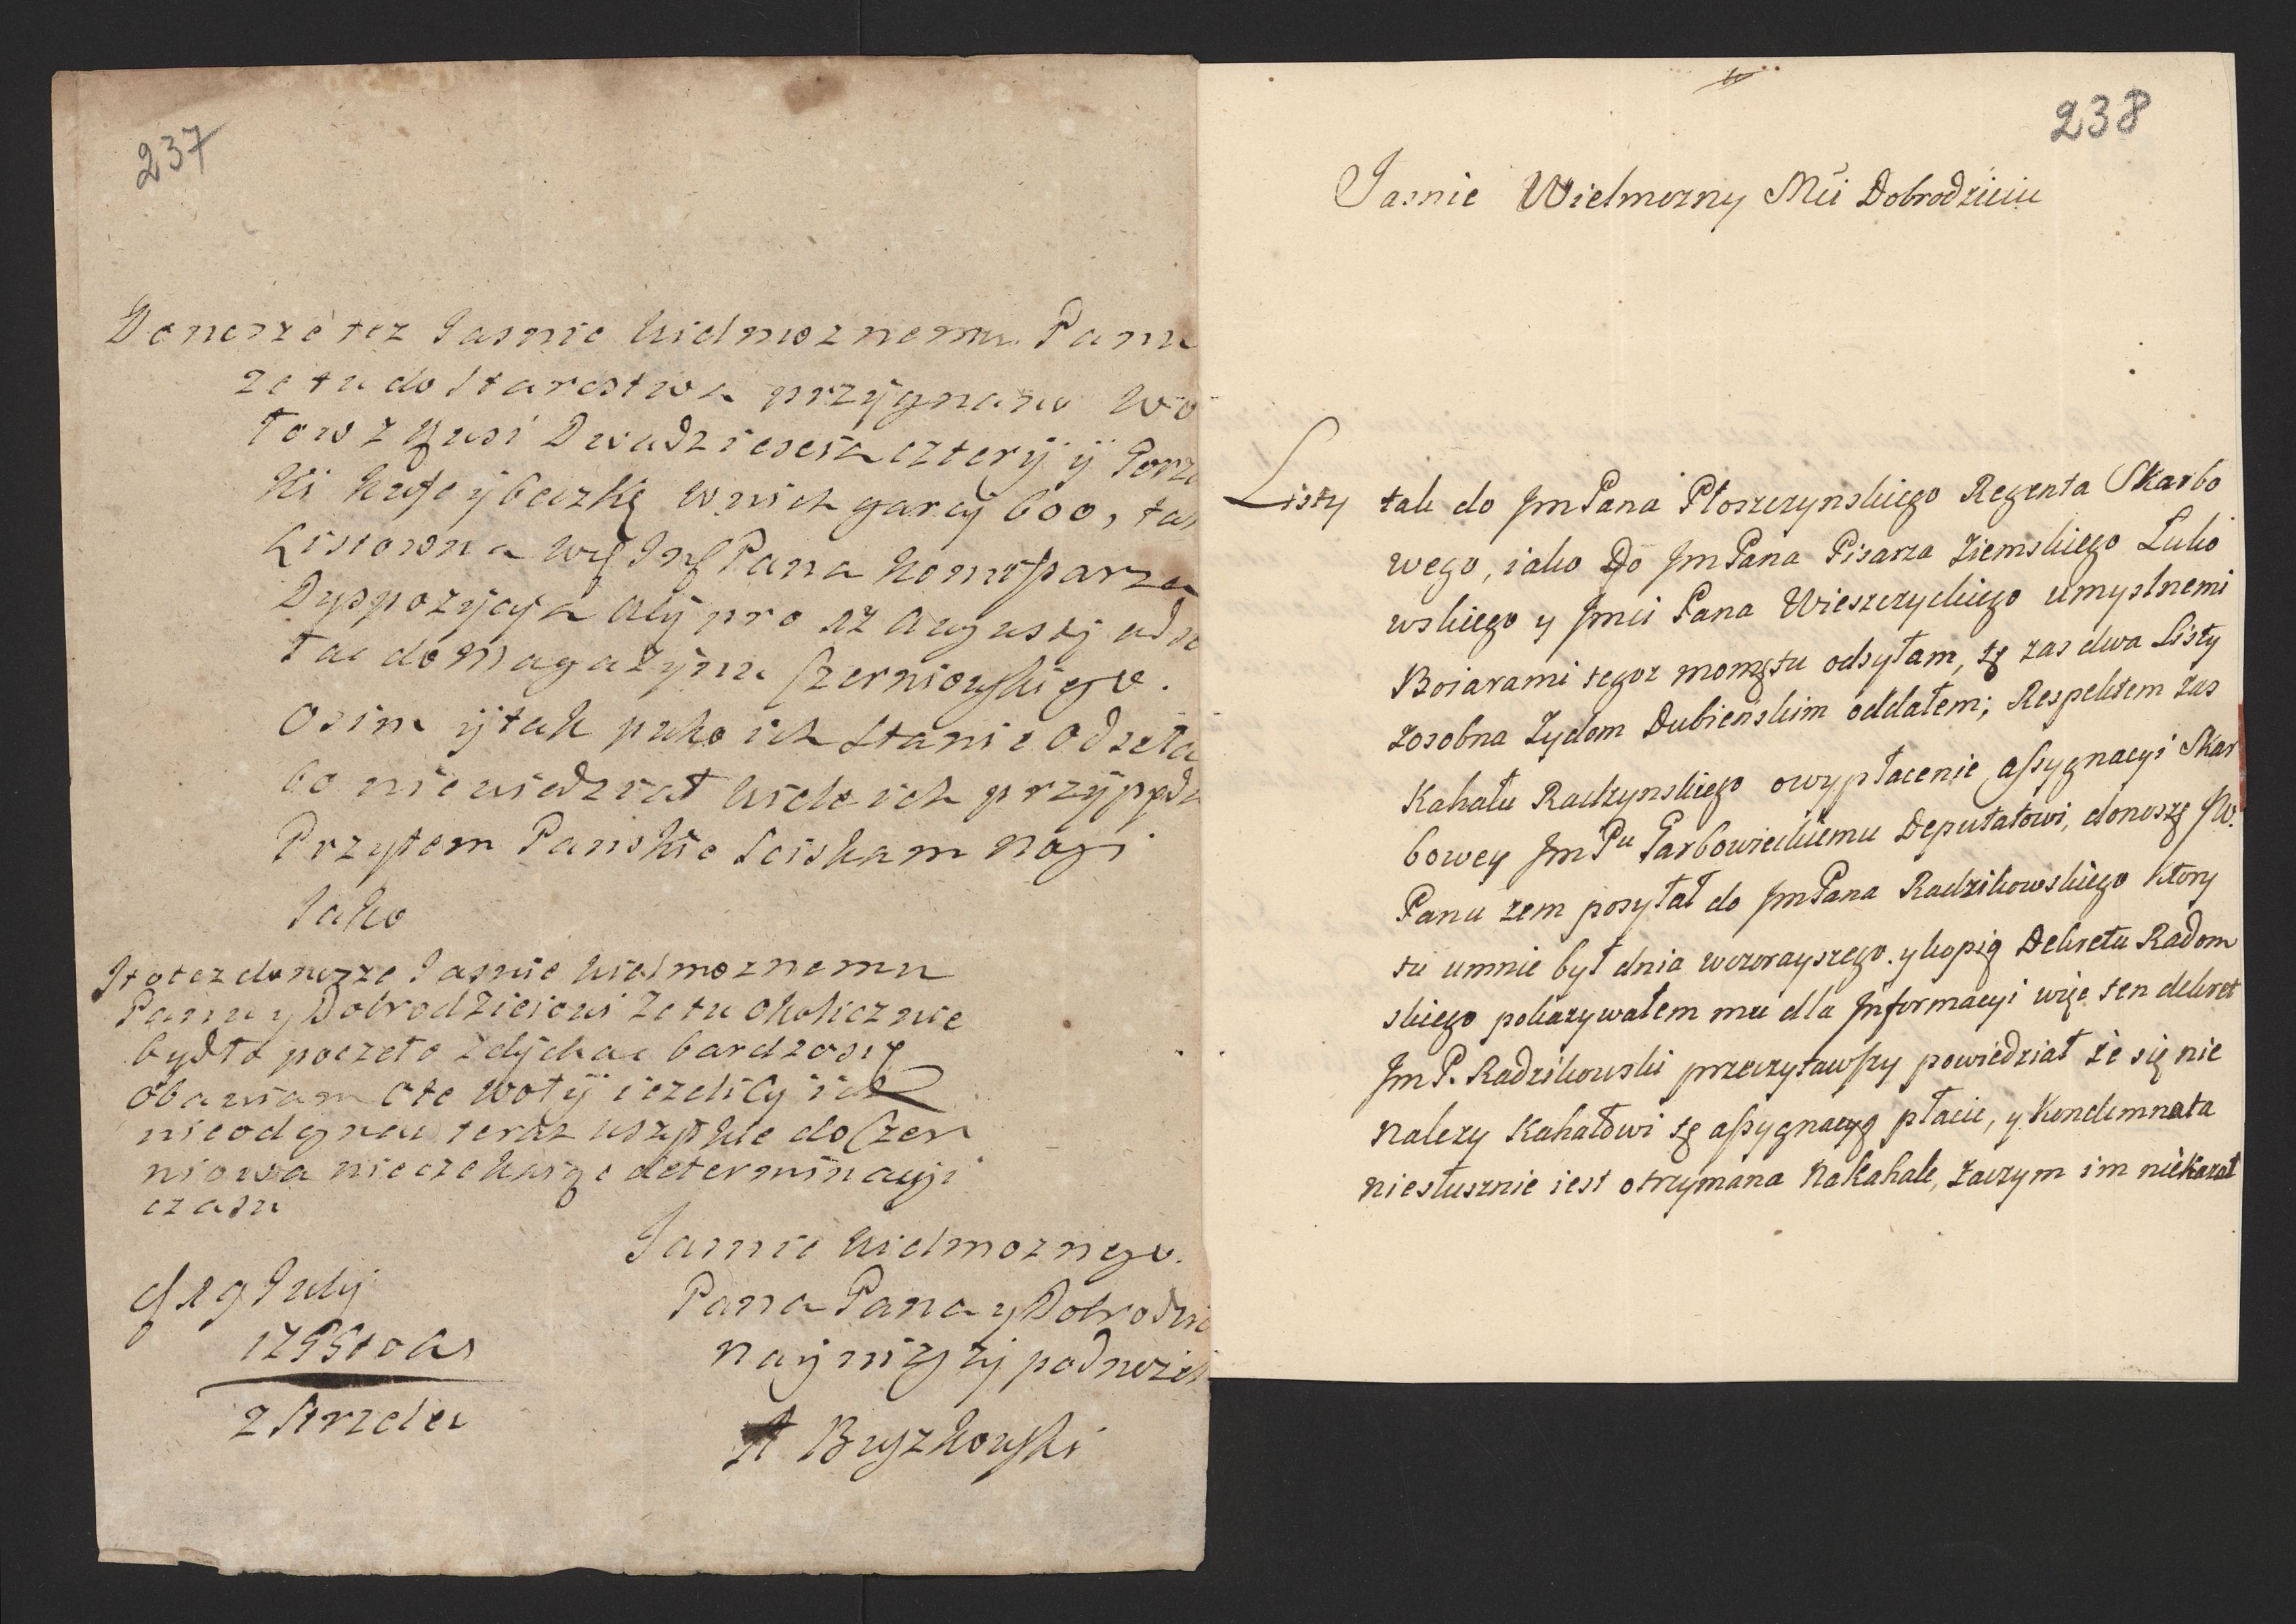 237
Donosze tez Jasnie Wielmoznemu Panu
ze tu do Starostwa przygnano Wo
łow z Rusi Dwadziescia cztery ÿ Gorza
ki kufe ÿ beczkę w nich garcy 600, ta
Pana
Dyspozycya aby pro 12 Augusti
tac do Magazynu Czerniowskiego.
Osim ÿ tak puko ich stanie
bo nie wiedział wiele ich
Przytem Panskie sciskam Nogi
Jako
Ito tez donosze Jasnie Wielmoznemu
Panu y Dobrodzieiowi Ze tu Okolicznie
bydło poczeło zdychac bardzo się
obawiam o te woły iezeli Cy ich
nie odgnac teraz wszystkie do Czer
niowa nie czekaiąc determinacyi
czasu
Jasnie Wielmoznego.
Pana Pana y Dobrodzie
Nayniszy podnozek
A Buszkowski
d 19 July
Z Strzelec
238
Jasnie Wielmozny Mći Dobrodzieiu
Listy tak do Jm Pana Płoszczynskiego Regenta Skarbo
wego, iako Do Jm Pana Pisarza Ziemskiego Luko
wskiego y Jmci Pana Wieszczyckiego umyslnemi
Boiarami tegoz momętu odsyłam, tę zas dwa Listy
zosobna Zydom Dubienskim oddałem; Respektem zas
Kahału Radzynskiego o wypłacenie assygnacyi Skar
bowey Jm Pu Garbowieckiemu Deputatowi, donoszę JW.
Panu zem posyłał do Jm Pana Radzikowskiego ktory
tu umnie był dnia wczorayszego. y kopią Dekretu Radom
skiego pokazywałem mu dla Jnformacyi więc ten dekret
Jm P. Radzikowski przeczytawszy powiedział że się nie
nalezy Kahałowi tę assygnacyą płacic, y Kondemnata
niesłusznie iest otrzymana na Kahale, zaczym im niekazał